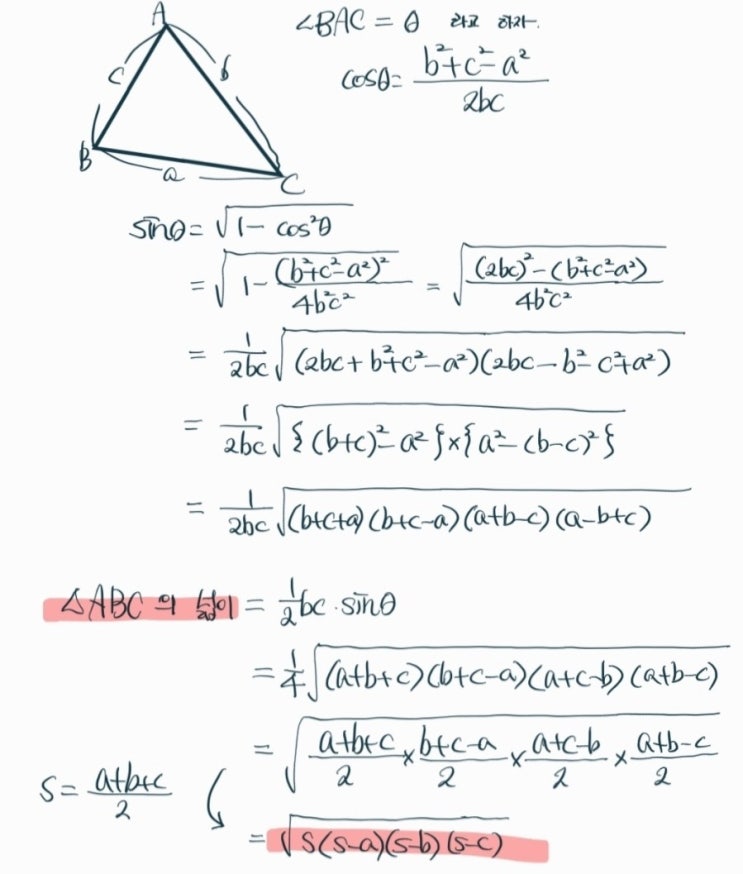 A
c
b
B
a
C
∠BAC = θ 라고 하자.
cosθ = (b²+c²-a²)/2bc
sinθ = √(1 - cos²θ)
= √(1 - (b²+c²-a²)²/4b²c²) = √(((2bc)²-(b²+c²-a²))/4b²c²)
= 1/2bc √((2bc+b²+c²-a²)(2bc-b²-c²+a²))
= 1/2bc √({(b+c)²-a²}×{a²-(b-c)²})
= 1/2bc √((b+c+a)(b+c-a)(a+b-c)(a-b+c))
△ABC의 넓이 = 1/2 bc·sinθ
= 1/4 √((a+b+c)(b+c-a)(a+c-b)(a+b-c))
= √((a+b+c)/2 × (b+c-a)/2 × (a+c-b)/2 × (a+b-c)/2)
S = (a+b+c)/2
= √(S(S-a)(S-b)(S-c))